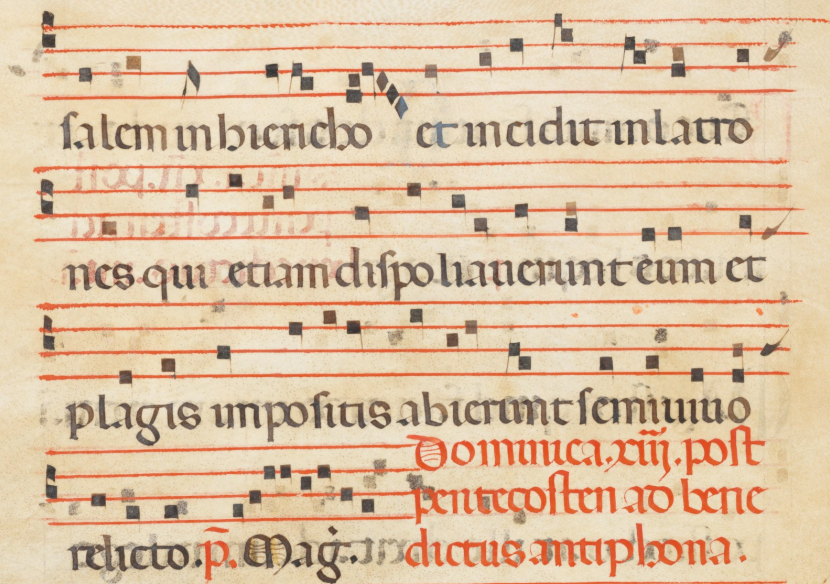 salem in hiericho et incidit in latro
nes qui etiam dispoliauerunt eum et
plagis impositis abierunt semiuiuo
Dominica.xiij.post
pentecosten ad bene
relicto.p̄. Maġ̣. dictus antiphona.